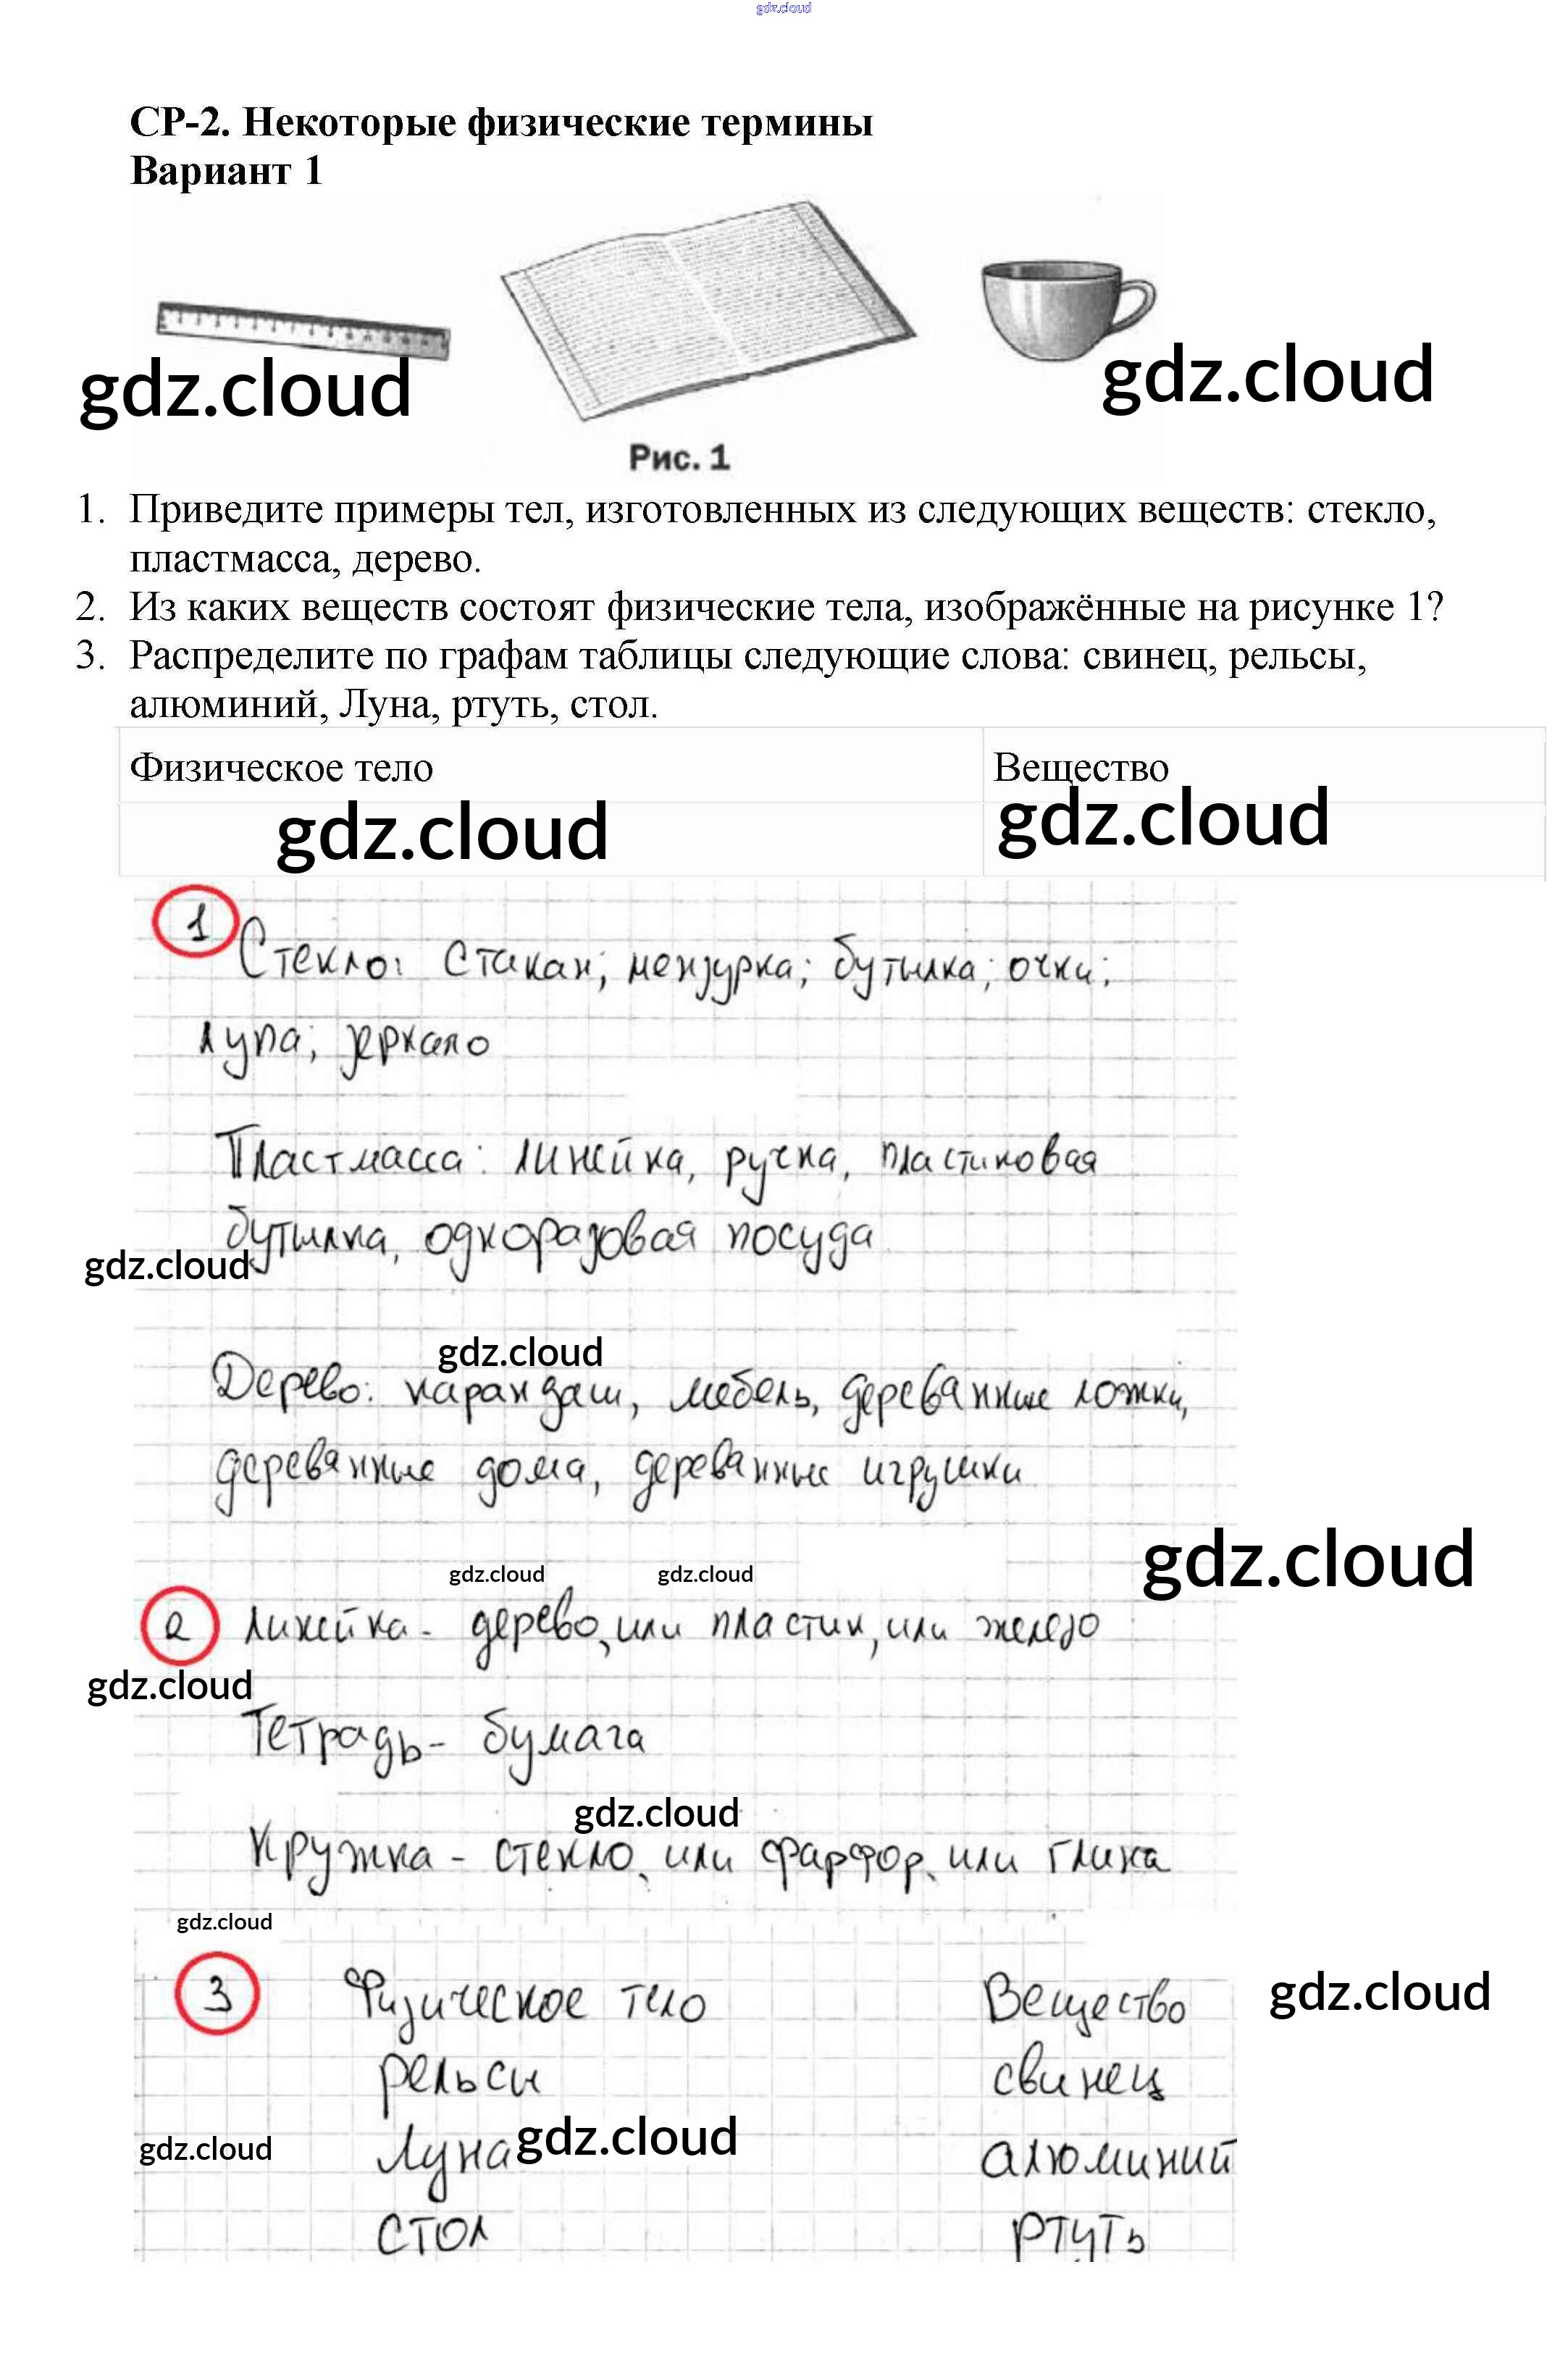 gdz.cloud
СР-2. Некоторые физические термины
Вариант 1
gdz.cloud
gdz.cloud
Рис. 1
1. Приведите примеры тел, изготовленных из следующих веществ: стекло,
пластмасса, дерево.
2. Из каких веществ состоят физические тела, изображённые на рисунке 1?
3. Распределите по графам таблицы следующие слова: свинец, рельсы,
алюминий, Луна, ртуть, стол.
Физическое тело Вещество
gdz.cloud gdz.cloud
1 Стекло: стакан; мензурка; бутылка; очки;
лупа; зеркало
Пластмасса: линейка, ручка, пластиковая
бутылка, одноразовая посуда
gdz.cloud
gdz.cloud
Дерево: карандаш, мебель, деревянные ложки,
деревянные дома, деревянные игрушки
gdz.cloud
gdz.cloud gdz.cloud
2 линейка - дерево, или пластик, или железо
gdz.cloud
Тетрадь - бумага
gdz.cloud
Кружка - стекло, или фарфор, или глина
gdz.cloud
3 Физическое тело Вещество
gdz.cloud
рельсы свинец
gdz.cloud
Луна алюминий
gdz.cloud
стол ртуть